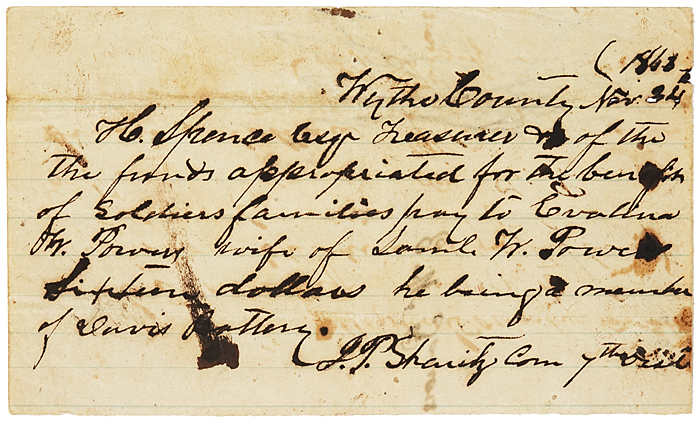 (1863
Wythe County Nov. 24
H. Spence Esqr Treasurer &c of the
the funds appropriated for the benefit
of Soldiers families pay to Evalina
W. Powers wife of Saml. W. Powers
Sixteen dollars he being a member
of Davis Battery.
J. P. Sharitz Com 7th Dist